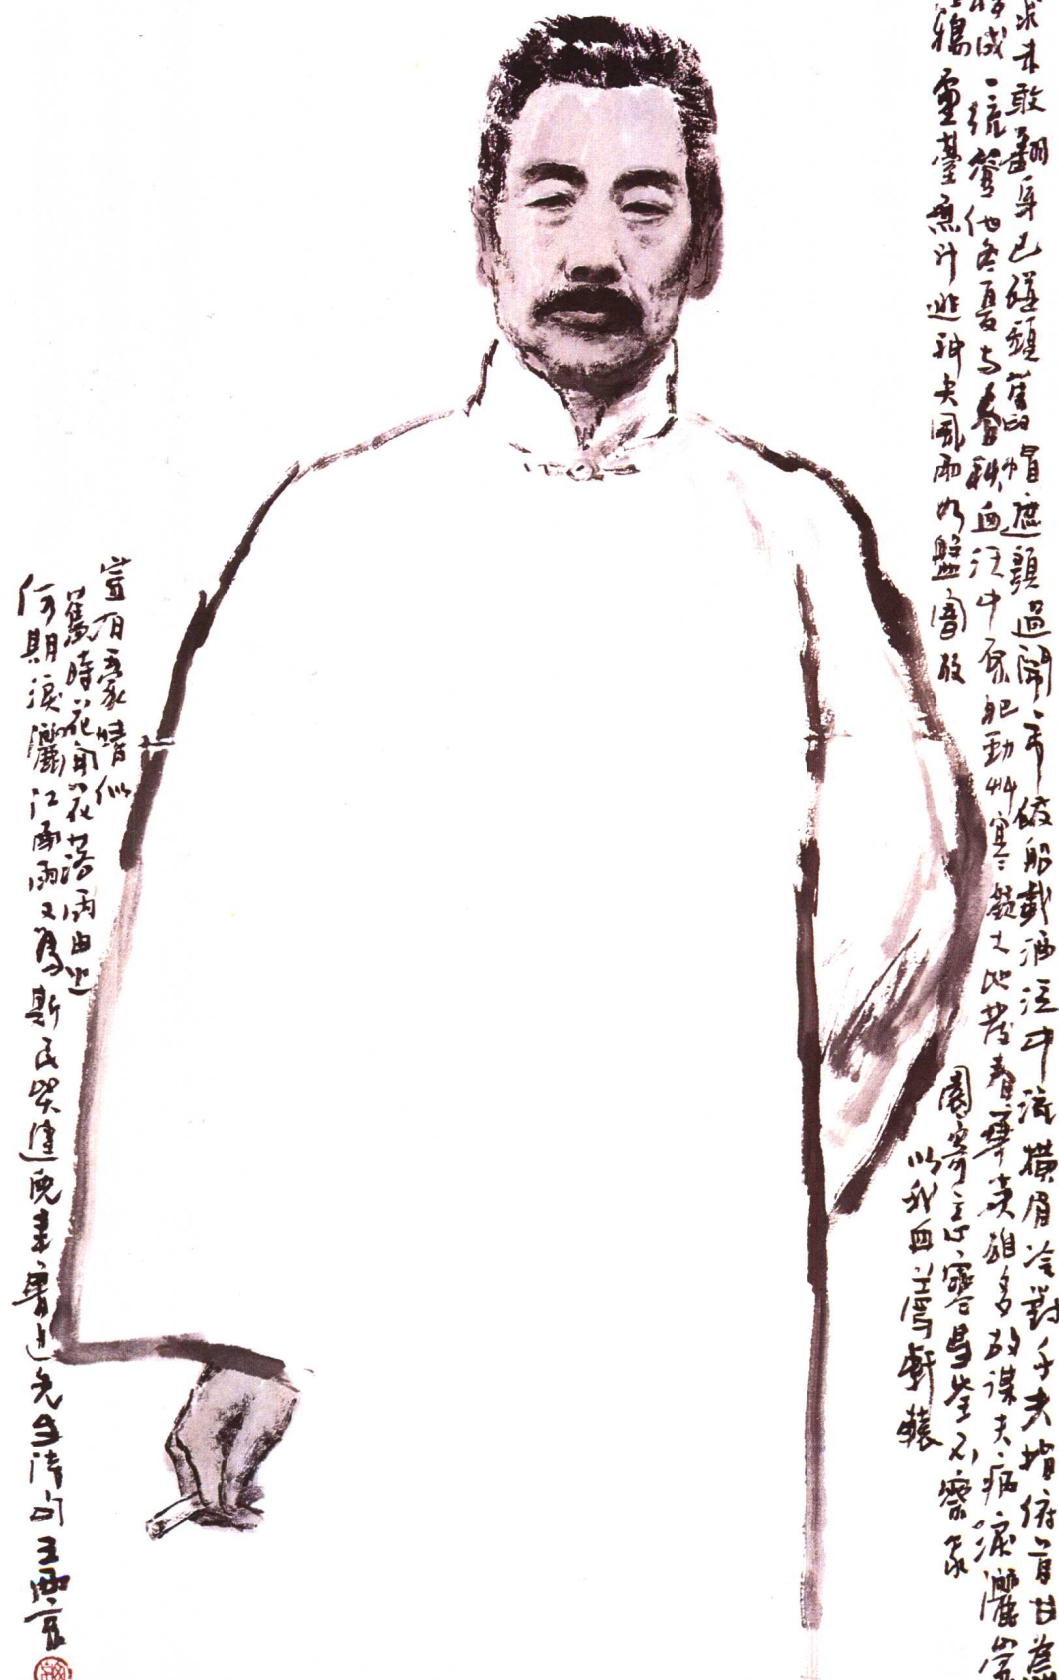 求未敢翻身已碰頭舊帽遮顏過鬧市破船載酒泛中流橫眉冷對千夫指俯首甘為
成一統管他冬夏與春秋血沃中原肥勁草寒凝大地發春華英雄多故謀夫病淚灑崇
鴉靈臺無計逃神矢風雨如磐闇故
園寄意寒星荃不察我
以我血薦軒轅
豈有豪情似
舊時花開花落兩由之
何期淚灑江南雨又為斯民哭健兒書魯迅先生詩句王西京